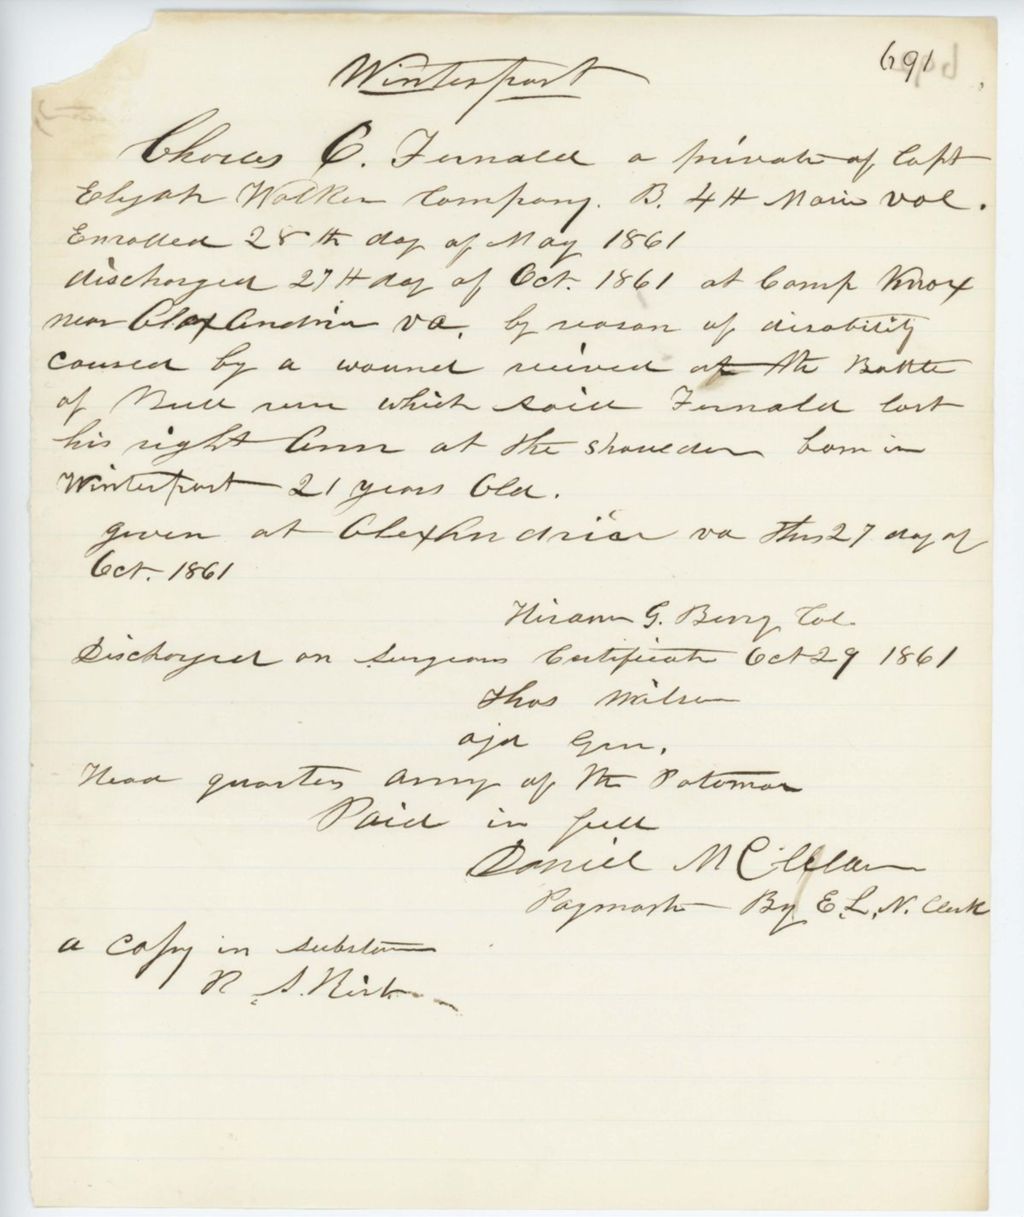 691
Winterport
Charles C. Fernald a private of Capt
Elijah Walker Company. B. 4th Main vol.
Enrolled 28th day of May 1861
discharged 27th day of Oct. 1861 at Camp Knox
near AlexAndria va. by reason of disability
caused by a wound recived at the Battle
of Bull run which said Fernald lost
his right Arm at the shoulder born in
Winterport 21 years Old.
given at AlexAndria va this 27 day of
Oct. 1861
Hiram G. Berry Col.
Discharged on Surgeons Certificate Oct 29 1861
Thos Wilson
ajd Gen.
Head quarters Army of the Potomac
Paid in full
Daniel McClelan
Paymaster By E. L. N. Clerk
a copy in substance
R. S.